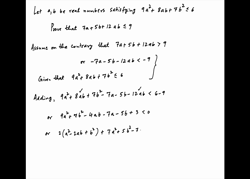 Let a,b be real numbers satisfying 9a² + 8ab + 7b² ≤ 6
Prove that 7a + 5b + 12ab ≤ 9
Assume on the contrary that 7a + 5b + 12ab > 9
or -7a - 5b - 12ab < -9
Given that 9a² + 8ab + 7b² ≤ 6
Adding, 9a² + 8ab + 7b² - 7a - 5b - 12ab < 6 - 9
or 9a² + 7b² - 4ab - 7a - 5b + 3 < 0
or 2(a² - 2ab + b²) + 7a² + 5b² - 7